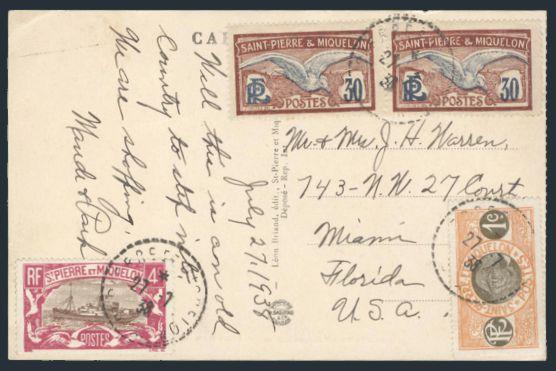 CA
SAINT-PIERRE & MIQUELON
30
POSTES
SAINT-PIERRE & MIQUELON
30
POSTES
July 27, 1938
Well this is an old
Country to stop into
We are shopping,
Léon Briand, édit., St-Pierre et Miq
Déposé - Rep. Int
Mr & Mrs. J. H. Warren,
743-N.W. 27 Court
Miami
Florida
U.S.A.
RF
ST PIERRE ET MIQUELON
4c
POSTES
27 -7
38
1c